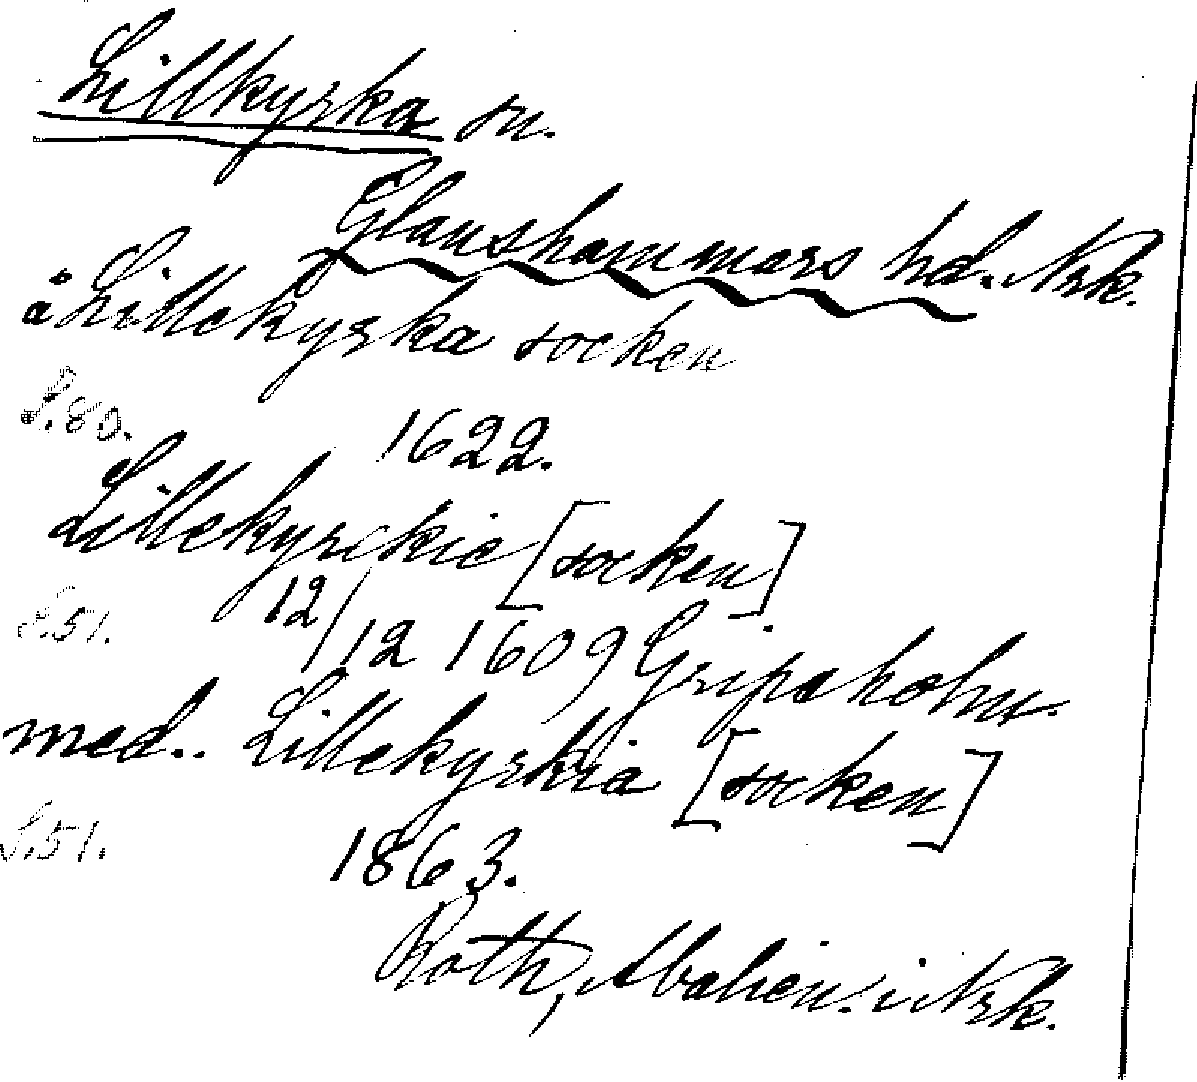 Lillkyrka sn.
Glanshammars hd. Nrk.
å Lillekyrka socken
S. 80.
1622.
Lillekyrckie [socken]
S. 51.
12/12 1609 Gripsholm.
med. Lillekyrkia [socken]
S. 51.
1863.
Roth, i Nrk.